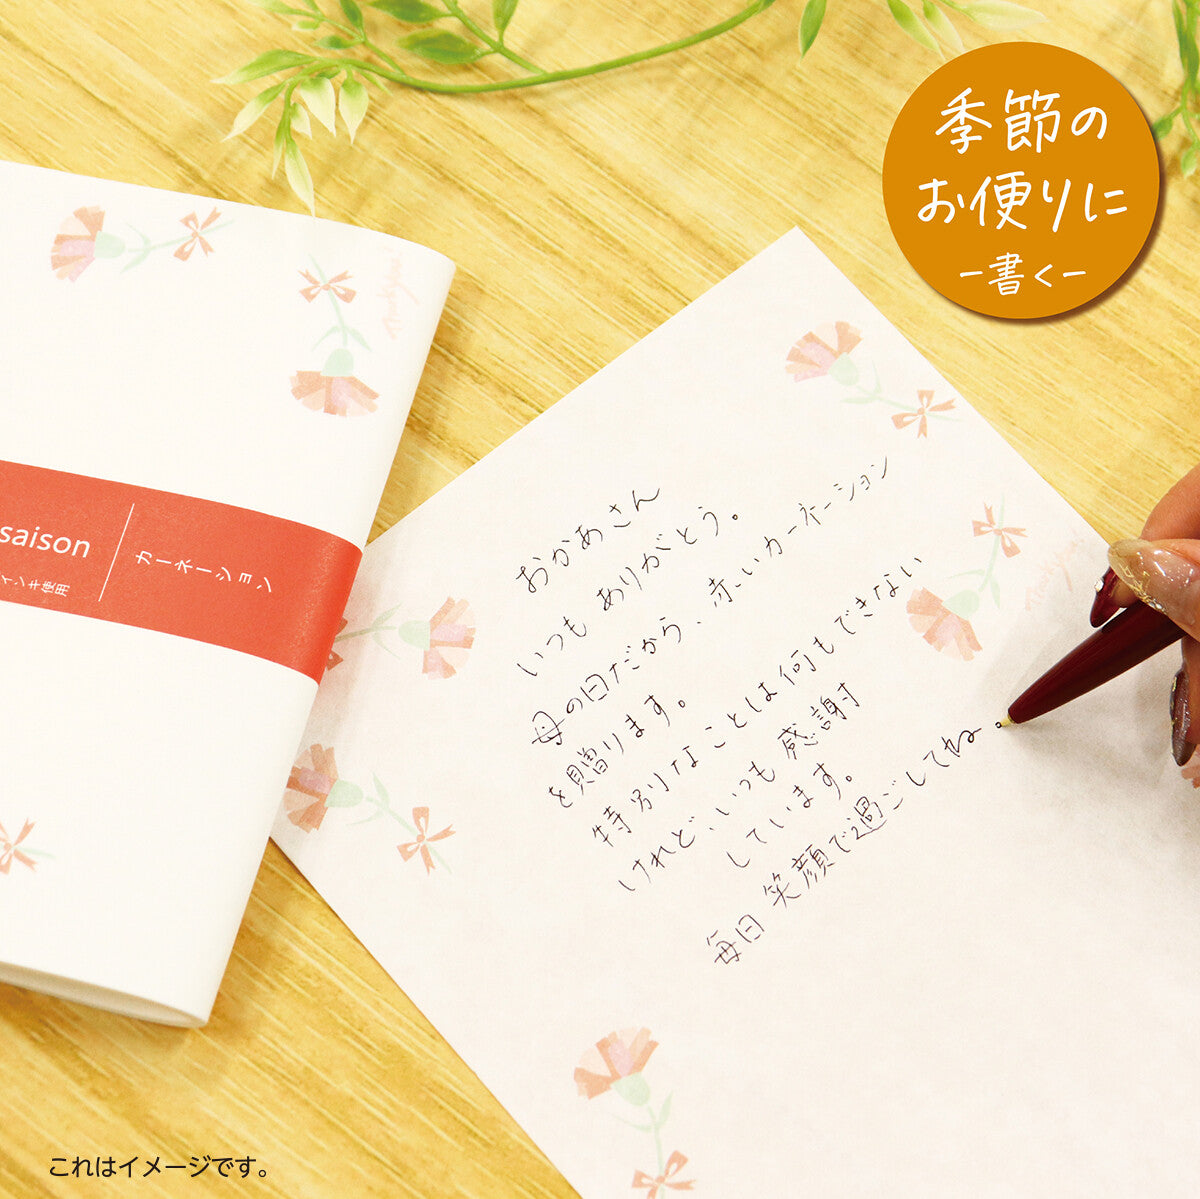 季節の
お便りに
ー書くー
saison
カーネーション
インキ使用
おかあさん
いつもありがとう。
母の日だから、赤いカーネーション
を贈ります。
特別なことは何もできない
けれど、いつも感謝
しています。
毎日笑顔で過ごしてね。
これはイメージです。